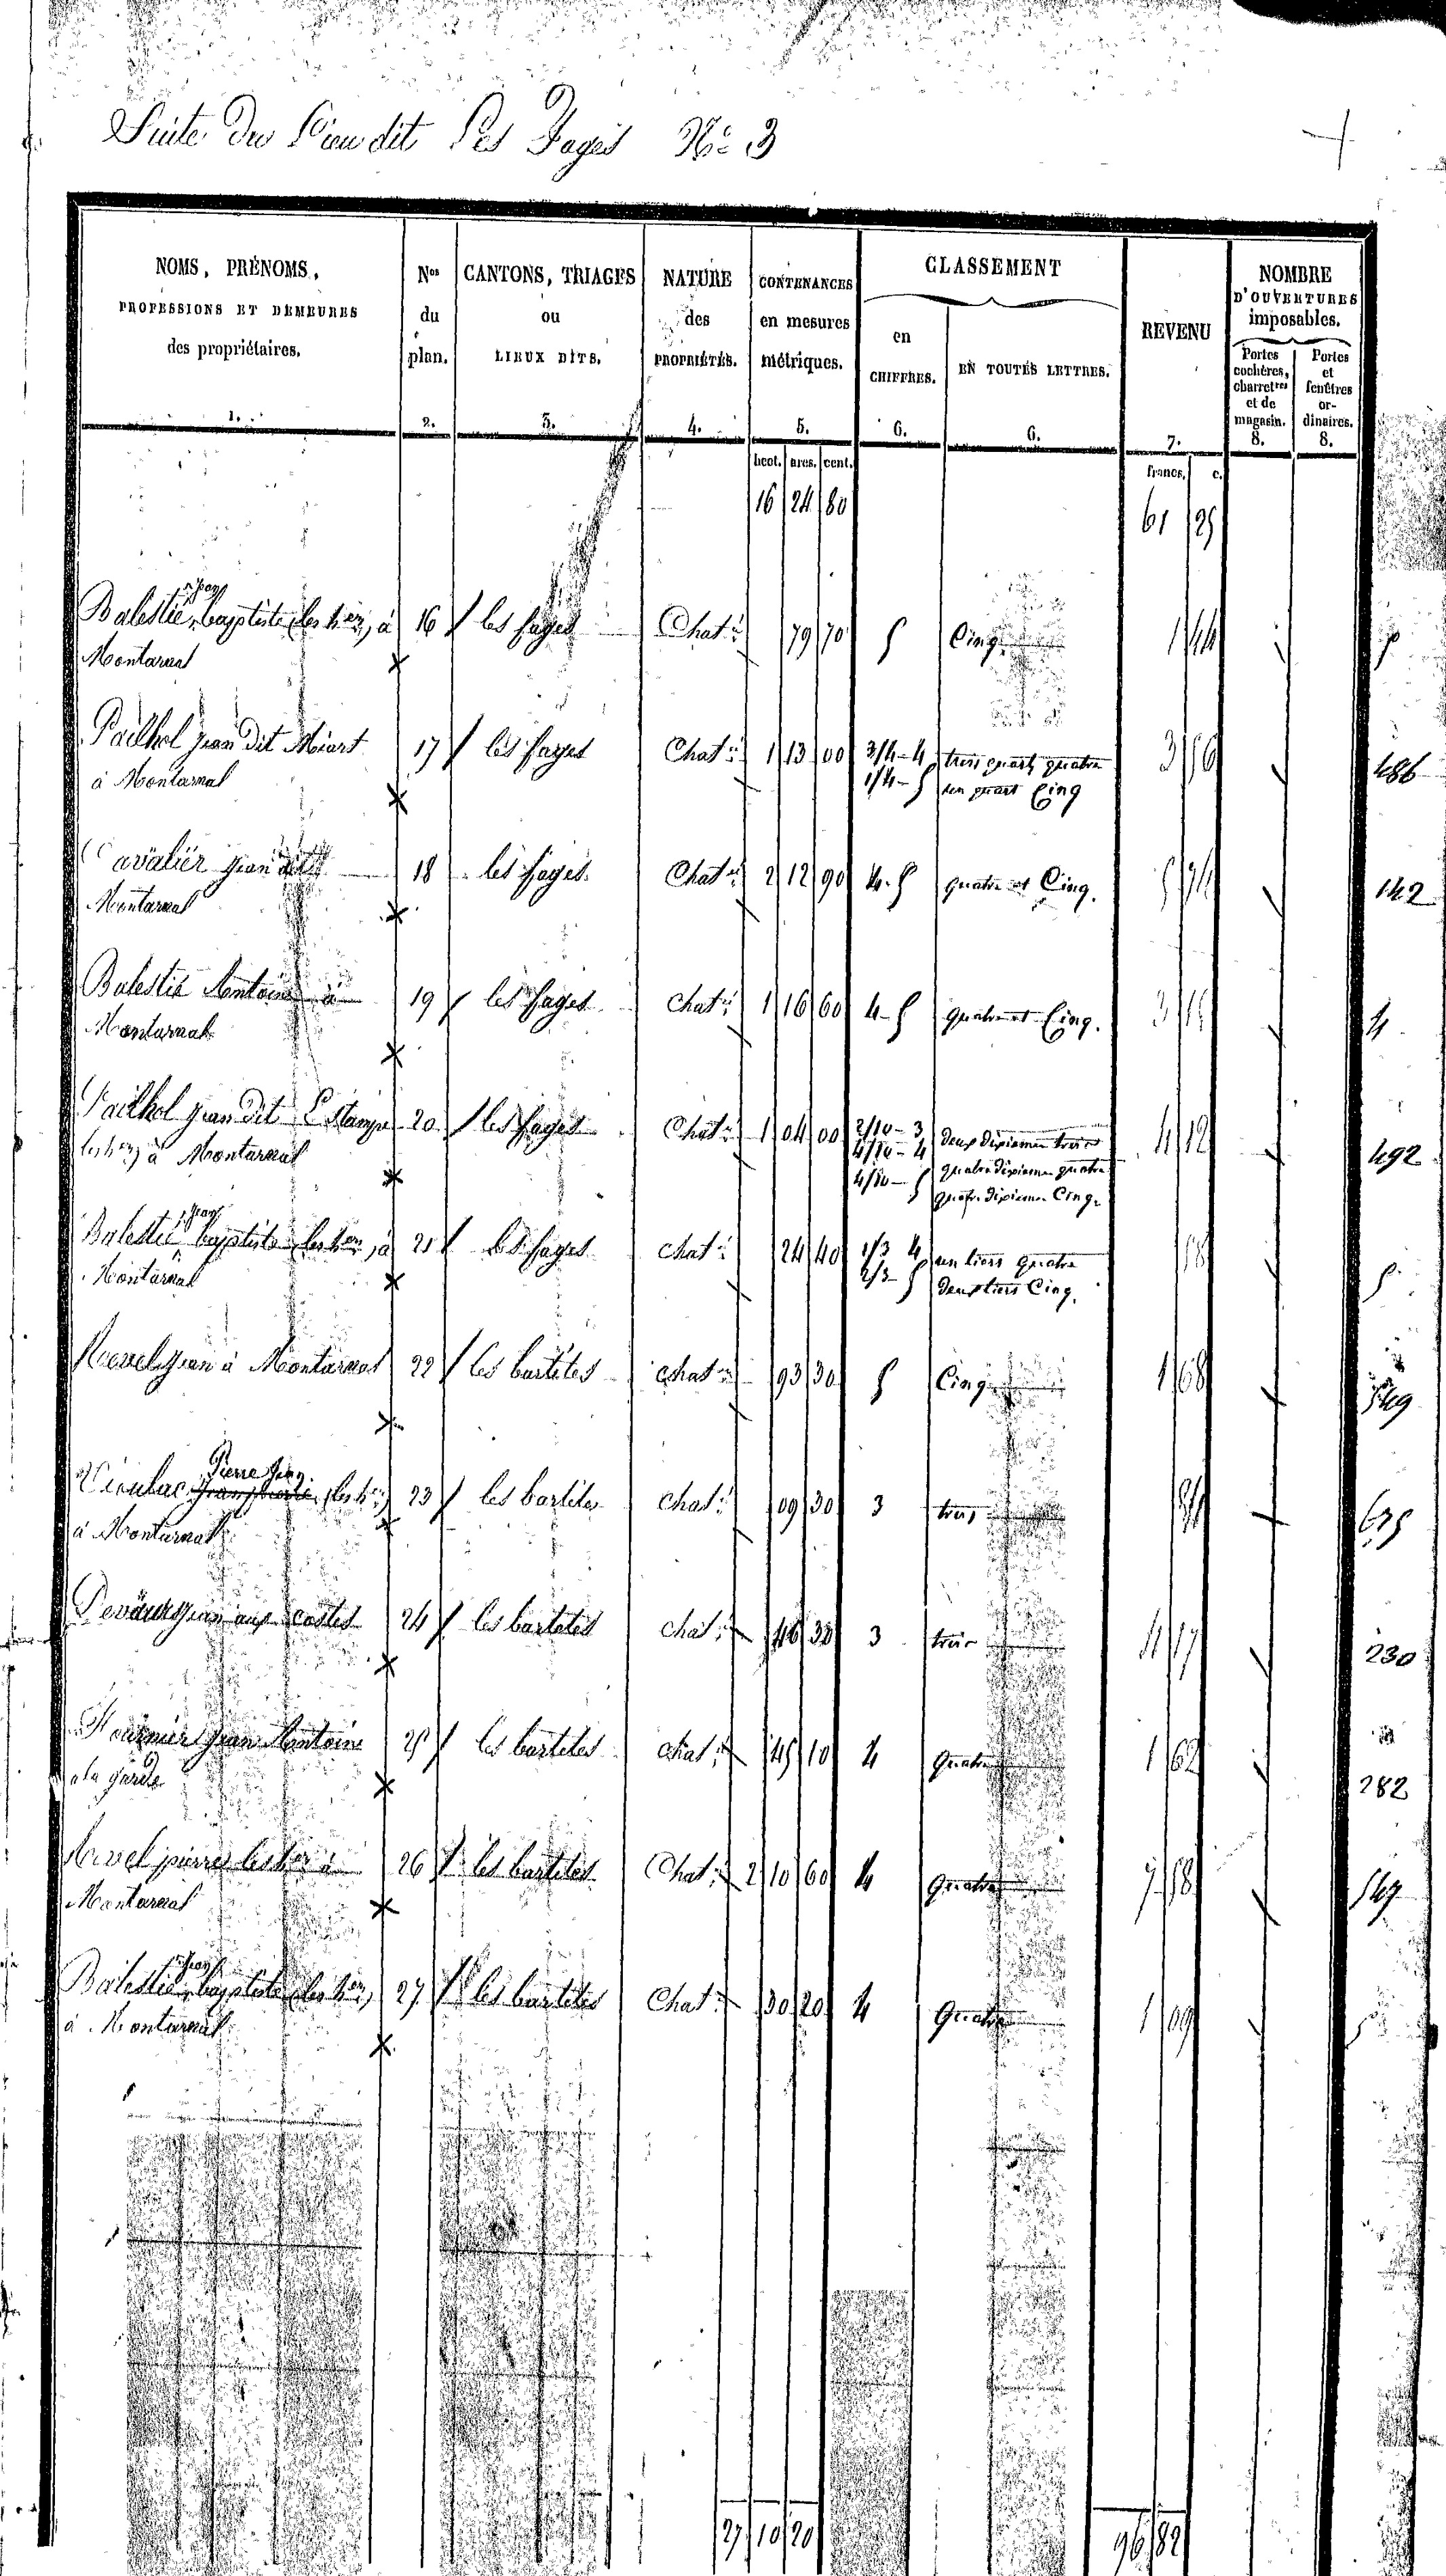 Suite du Lieu dit Les Fages N° 3
NOMS, PRÉNOMS, PROFESSIONS ET DEMEURES des propriétaires. 1.
Nos du plan. 2.
CANTONS, TRIAGES ou LIEUX DITS. 3.
NATURE des PROPRIÉTÉS. 4.
CONTENANCES en mesures métriques. 5.
CLASSEMENT
en CHIFFRES. 6.
EN TOUTES LETTRES. 6.
REVENU 7.
NOMBRE D'OUVERTURES imposables.
Portes cochères, charretres et de magasin. 8.
Portes et fenêtres ordinaires. 8.
hect. ares. cent. francs. c.
16 24 80 61 25
Jean
Balestié baptiste (les hers) à 16 les fages Chatie 79 70 5 Cinq 1 44 5
Montarnal
Pailhol jean dit 17 les fages Chatie 1 13 00 3/4 - 4 trois quarts quatre 3 56 486
à Montarnal 1/4 - 5 un quart Cinq
Cavalier jean 18 les fages Chatie 2 12 90 4. 5 quatre et Cinq. 5 74 142
Montarnal
Balestié Antoine à 19 les fages Chatie 1 16 60 4 - 5 quatre et Cinq. 3 15 4
Montarnal
Pailhol jean dit 20 les fages Chatie 1 04 00 2/10 - 3 deux dixièmes trois 4 12 492
les hers à Montarnal 4/10 - 4 quatre dixièmes quatre
4/10 - 5 quatre dixièmes Cinq.
Jean
Balestié baptiste (les hers) à 21 les fages Chatie 24 40 1/3 4 un tiers quatre 58 5
Montarnal 2/3 - 5 deux tiers Cinq.
jean à Montarnal 22 les bartètes Chatie 93 30 5 Cinq 1 68 549
Pierre Jean
Viculac (les hers) 23 les bartètes Chatie 09 30 3 trois 84 635
à Montarnal
jean aux costes 24 les bartètes Chatie 46 30 3 trois 4 17 230
Fournier jean Antoine 25 les bartètes Chatie 45 10 4 Quatre 1 62 282
a la garde
pierre les hers à 26 les bartètes Chatie 2 10 60 4 Quatre 7 58 547
Montarnal
Jean
Balestié baptiste (les hers) 27 les bartètes Chatie 30 20 4 Quatre 1 09 5
à Montarnal
27 10 20 96 82